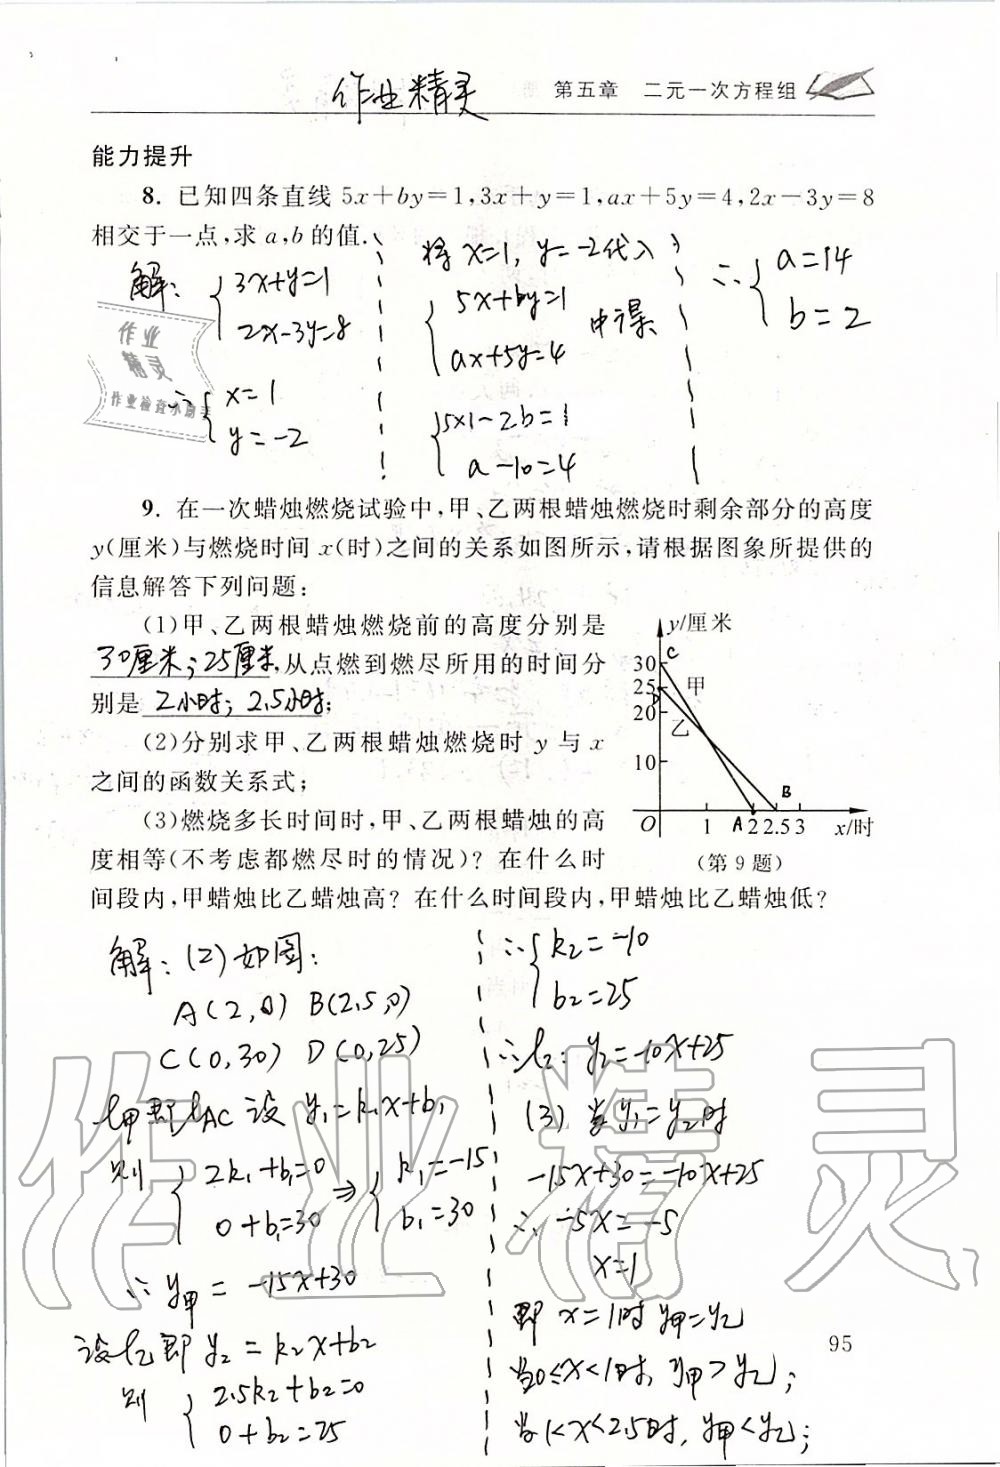 作业精灵
第五章 二元一次方程组
能力提升
8. 已知四条直线 5x+by=1,3x+y=1,ax+5y=4,2x-3y=8
相交于一点,求 a,b 的值.
解: { 3x+y=1
2x-3y=8
∴ { x=1
y=-2
将 x=1, y=-2代入
{ 5x+by=1
ax+5y=4
中得:
{ 5×1-2b=1
a-10=4
∴ { a=14
b=2
作业
精灵
作业检查小助手
9. 在一次蜡烛燃烧试验中,甲、乙两根蜡烛燃烧时剩余部分的高度
y(厘米)与燃烧时间 x(时)之间的关系如图所示,请根据图象所提供的
信息解答下列问题:
(1)甲、乙两根蜡烛燃烧前的高度分别是
30厘米;25厘米,从点燃到燃尽所用的时间分
别是 2小时; 2.5小时;
(2)分别求甲、乙两根蜡烛燃烧时 y 与 x
之间的函数关系式;
(3)燃烧多长时间时,甲、乙两根蜡烛的高
度相等(不考虑都燃尽时的情况)? 在什么时
间段内,甲蜡烛比乙蜡烛高? 在什么时间段内,甲蜡烛比乙蜡烛低?
y/厘米
C
30
25 甲
D
20 乙
10
B
O 1 A 2 2.5 3 x/时
(第9题)
解: (2) 如图:
A(2,0) B(2.5,0)
C(0,30) D(0,25)
l甲即lAC 设 y₁=k₁x+b₁
则 { 2k₁+b₁=0
0+b₁=30
⇒ { k₁=-15
b₁=30
∴ y甲 = -15x+30
设l乙即 y₂ = k₂x+b₂
则 { 2.5k₂+b₂=0
0+b₂=25
∴ { k₂=-10
b₂=25
∴ l₂: y₂=-10x+25
(3) 当y₁=y₂时
-15x+30=-10x+25
∴ -5x=-5
x=1
即 x=1时 y甲=y乙
当0≤x<1时, y甲>y乙;
当1<x<2.5时, y甲<y乙;
作业精灵
95